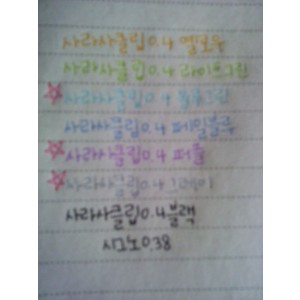 사라사클립0.4 옐로우
사라사클립0.4 라이트그린
사라사클립0.4 블루그린
사라사클립0.4 페일블루
사라사클립0.4 퍼플
사라사클립0.4 그레이
사라사클립0.4 블랙
시그노0.38